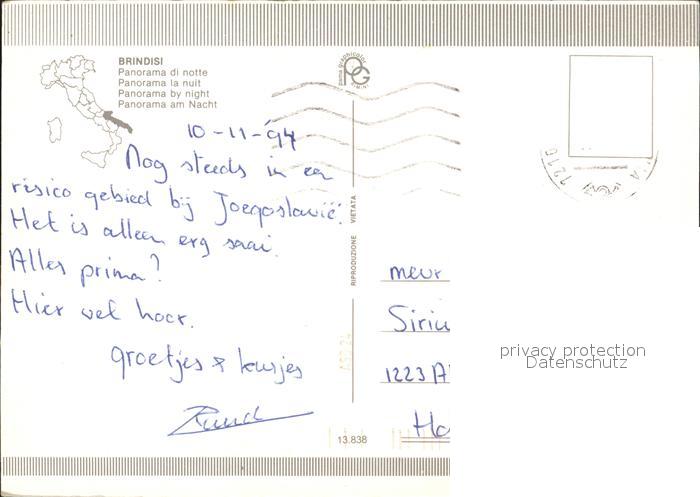 BRINDISI
Panorama di notte
Panorama la nuit
Panorama by night
Panorama am Nacht
10-11-'94
Nog steeds in een
risico gebied bij Joegoslavië.
Het is alleen erg saai.
Alles prima?
Hier wel hoor.
groetjes & kusjes
Ruud
RIPRODUZIONE VIETATA
PG
RIMINI
mevr
Siriu
1223 A
Ho
13.838
privacy protection
Datenschutz